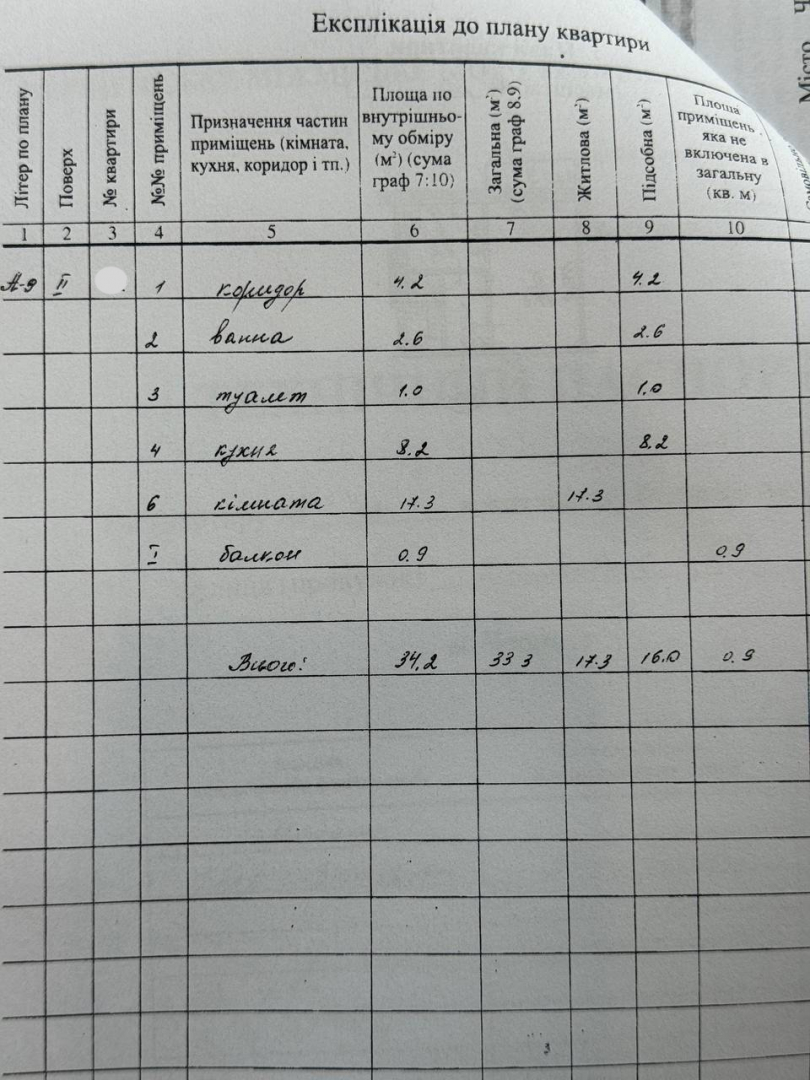 Експлікація до плану квартири
Літер по плану | Поверх | № квартири | №№ приміщень | Призначення частин приміщень (кімната, кухня, коридор і тп.) | Площа по внутрішньо-му обміру (м²) (сума граф 7:10) | Загальна (м²) (сума граф 8.9) | Житлова (м²) | Підсобна (м²) | Площа приміщень яка не включена в загальну (кв. м)
1 2 3 4 5 6 7 8 9 10
А-9 II 1 коридор 4.2 4.2
2 ванна 2.6 2.6
3 туалет 1.0 1.0
4 кухня 8.2 8.2
6 кімната 17.3 17.3
I балкон 0.9 0.9
Всього: 34.2 33 3 17.3 16.0 0.9
Місто
3